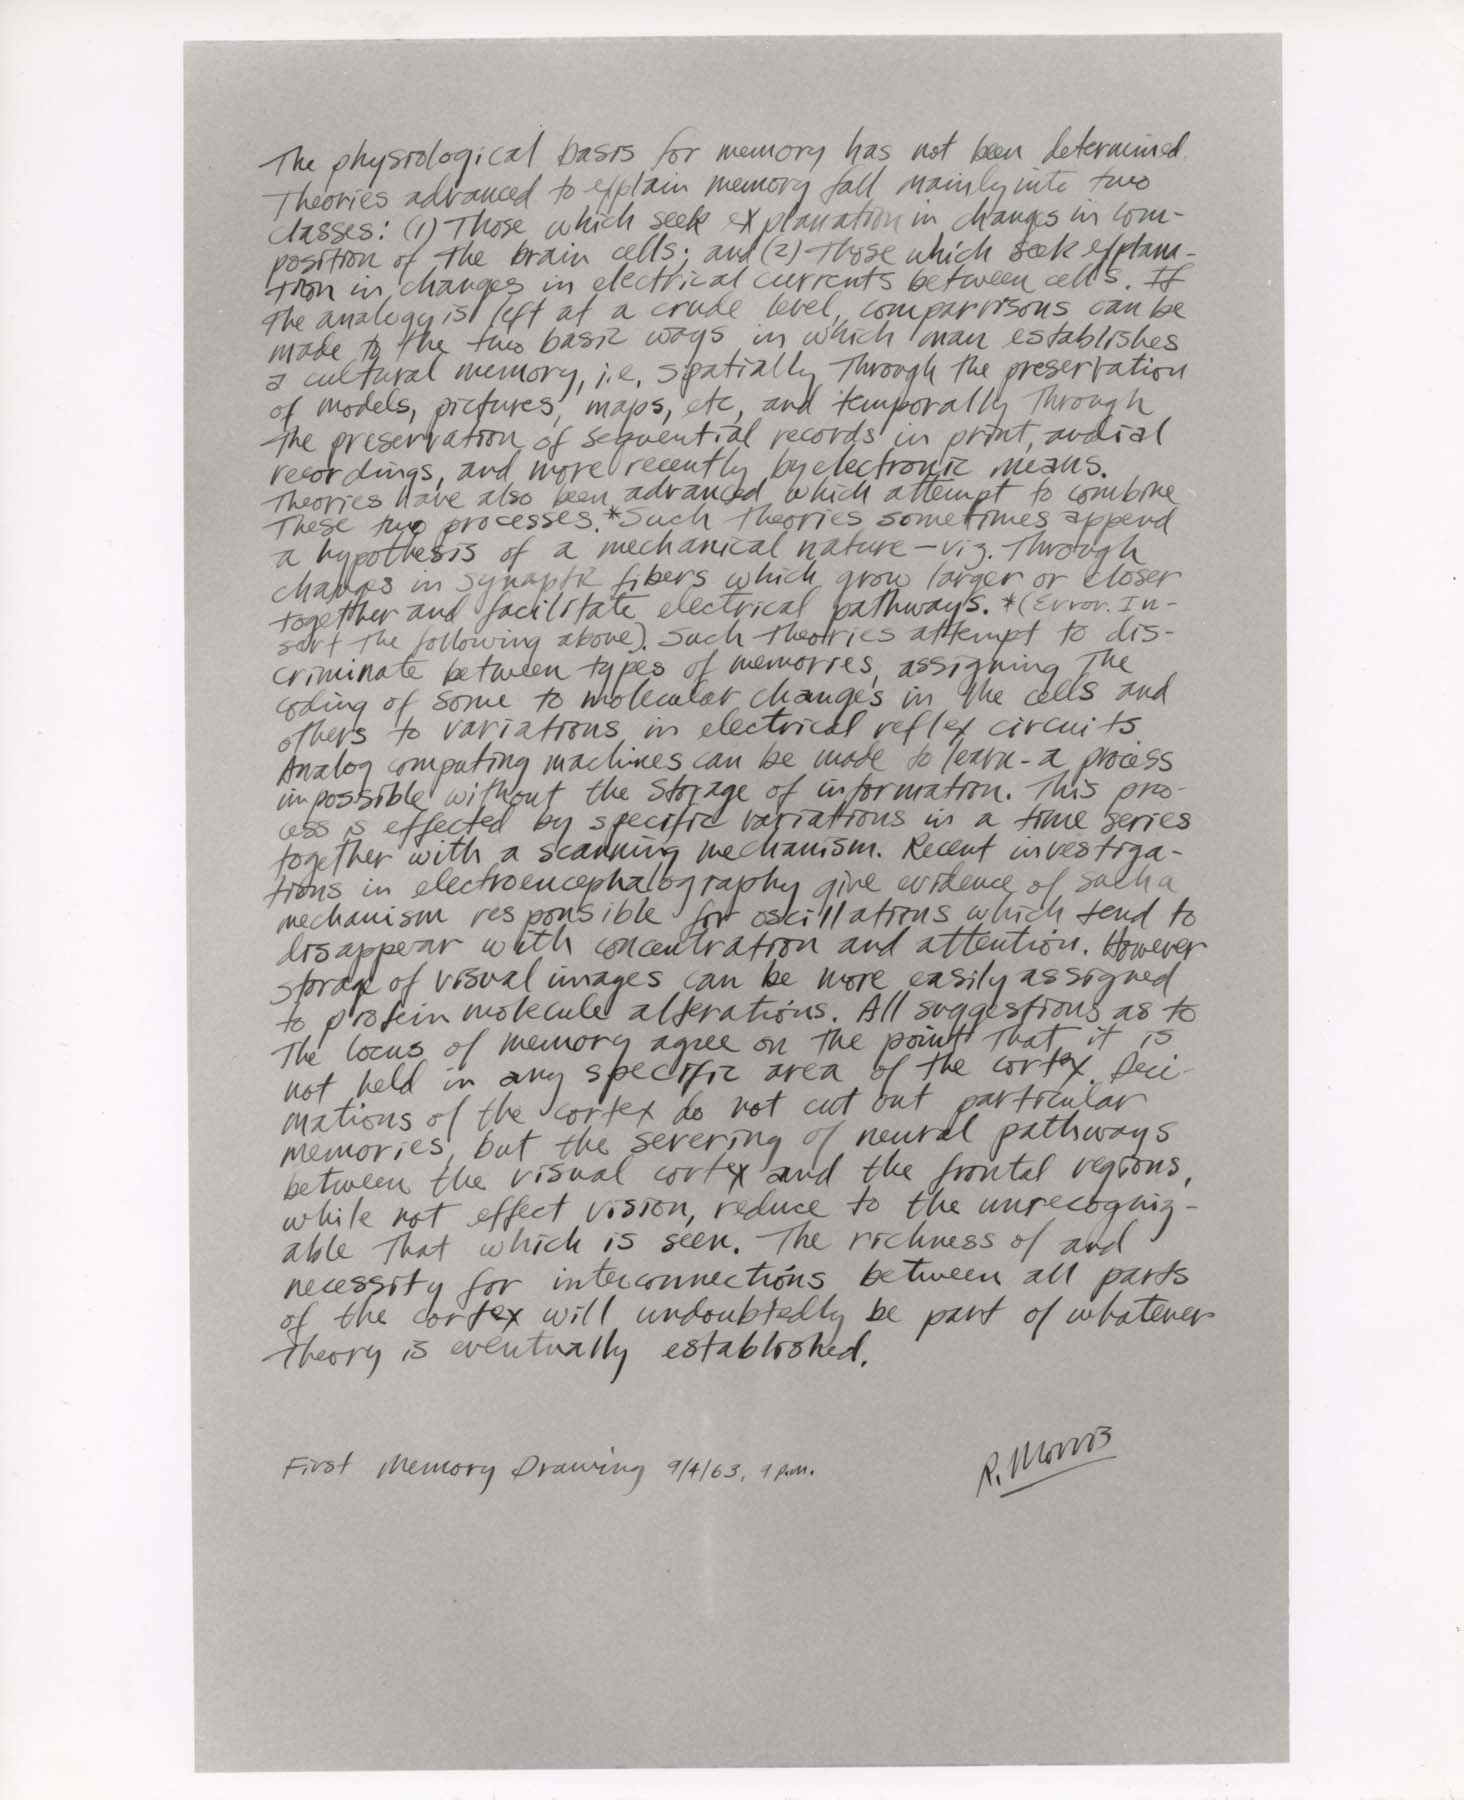 The physiological basis for memory has not been determined.
Theories advanced to explain memory fall mainly into two
classes: (1) Those which seek explanation in changes in com-
position of the brain cells; and (2) Those which seek explana-
tion in changes in electrical currents between cells. If
the analogy is left at a crude level, comparrisons can be
made to the two basic ways in which man establishes
a cultural memory, i.e. spatially Through the preservation
of models, pictures, maps, etc, and temporally Through
the preservation of sequential records in print, audial
recordings, and more recently by electronic means.
Theories have also been advanced which attempt to combine
These two processes.*Such Theories sometimes append
a hypothesis of a mechanical nature – viz. Through
changes in synaptic fibers which grow larger or closer
together and facilitate electrical pathways. *(Error. In-
sert The following above). Such Theories attempt to dis-
criminate between types of memories, assigning The
coding of some to molecular changes in the cells and
others to variations in electrical reflex circuits
Analog computing machines can be made to learn - a process
impossible without the storage of information. This pro-
cess is effected by specific variations in a time series
together with a scanning mechanism. Recent investiga-
tions in electroencephalography give evidence of such a
mechanism responsible for oscillations which tend to
disappear with concentration and attention. However
storage of visual images can be more easily assigned
to protein molecule alterations. All suggestions as to
The locus of memory agree on the point That it is
not held in any specific area of the cortex. Deci-
mations of the cortex do not cut out particular
memories, but the severing of neural pathways
between the visual cortex and the frontal regions,
while not effect vision, reduce to the unrecogniz-
able That which is seen. The richness of and
necessity for interconnections between all parts
of the cortex will undoubtedly be part of whatever
Theory is eventually established.
First Memory Drawing 9/4/63, 9 p.m.
R. Morris